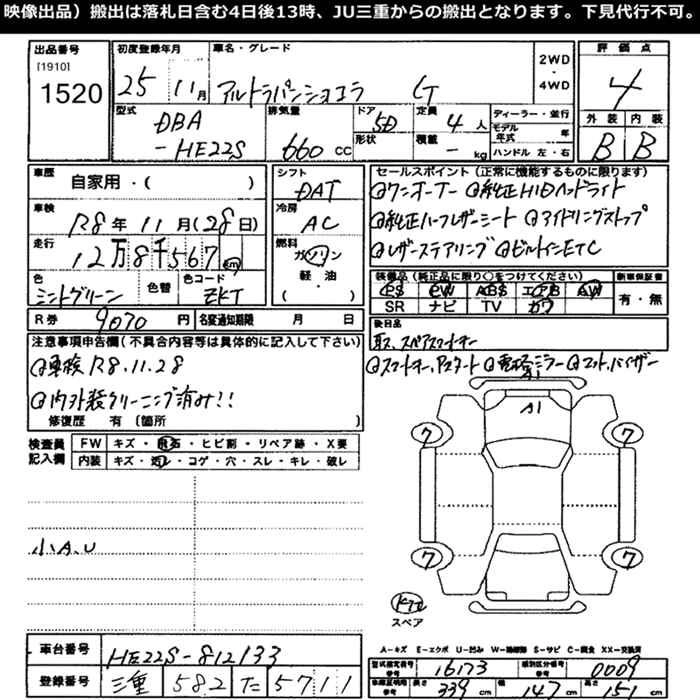 映像出品）搬出は落札日含む4日後13時、JU三重からの搬出となります。下見代行不可。
出品番号
[1910]
1520
初度登録年月
25 11月
車名・グレード
アルトラパンショコラ G
2WD
・
4WD
評価点
4
外装 内装
B B
型式
DBA
-HE22S
排気量
660 CC
ドア
形状
5D
定員
4 人
積載
- kg
ディーラー・並行
モデル年式 年
ハンドル 左・右
車歴
自家用・( )
車検
R8年 11月(28日)
走行
12万8千567 km
色
ミントグリーン
色替
色コード
ZKT
シフト
DAT
冷房
AC
燃料
ガソリン
軽・油
( )
セールスポイント（正常に機能するものに限ります）
@ワンオーナー @純正HIDヘッドライト
@純正ハーフレザーシート @アイドリングストップ
@レザーステアリング @ビルトインETC
装備品（純正品に限り○をつけてください）
PS PW ABS エアB AW
SR ナビ TV カワ
新車保証書
有・無
R券 9070 円
名変通知期限 月 日
後日品
取、スペアスマートキー
注意事項申告欄（不具合内容等は具体的に記入して下さい）
@車検R8.11.28
@内外装クリーニング済み!!
修復歴 有 〔箇所 〕
@スマートキー、Pスタート @電格ミラー @マット、バイザー
検査員
記入欄
FW キズ・飛石・ヒビ割・リペア跡・X要
内装 キズ・汚レ・コゲ・穴・スレ・キレ・破レ
小A.U
A1
A1
7
7
7
7
スペア
A-キズ E-エクボ U-凹み W-補修跡 S-サビ C-腐食 XX-交換済
車台番号
HE22S-812133
登録番号
三重 582 た 5711
型式指定番号
参考
16173
類別区分番号
参考
0009
車検証明時
参考
長さ 339 cm
幅 147 cm
高さ 151 cm